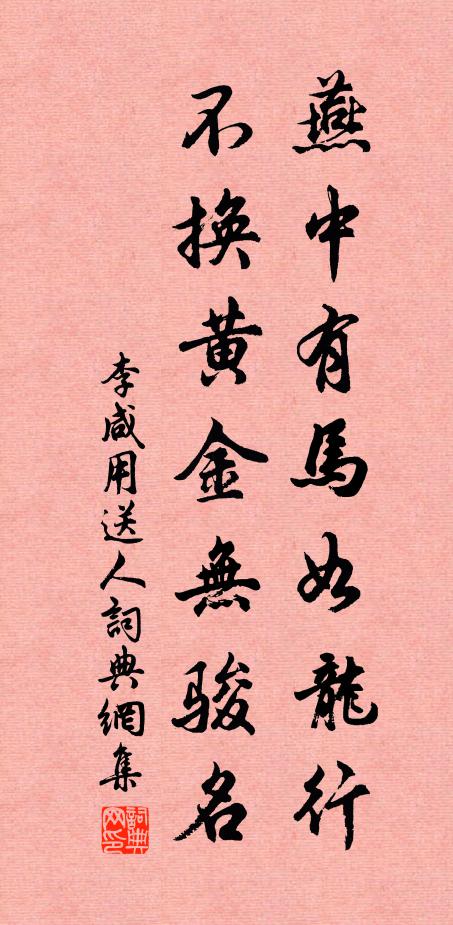 燕中有馬如龍行
不換黃金無駿名
李咸用送人詞典網集
詞典网印